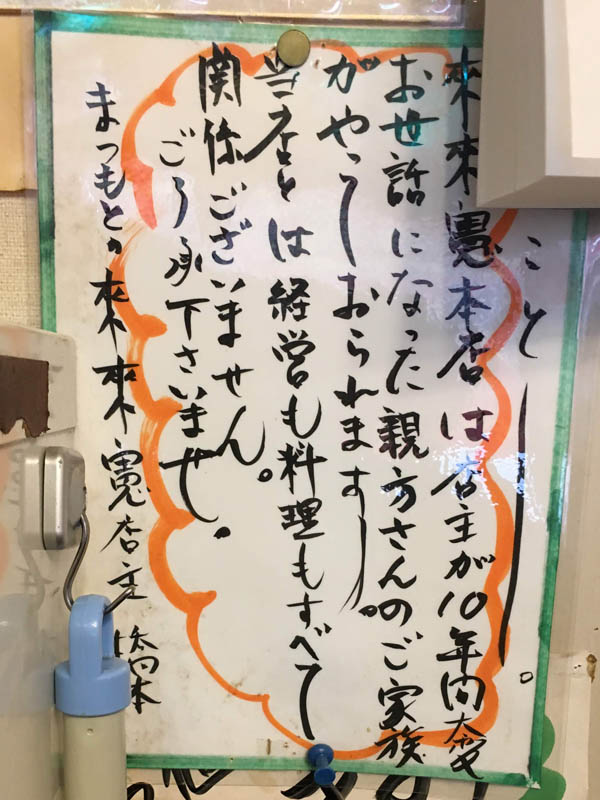 こと
來來憲本店は店主が10年間大変
お世話になった親方さんのご家族
がやっておられます。
当店とは経営も料理もすべて
関係ございません。
ご了承下さいませ。
まつもとの來來憲店主 橋本